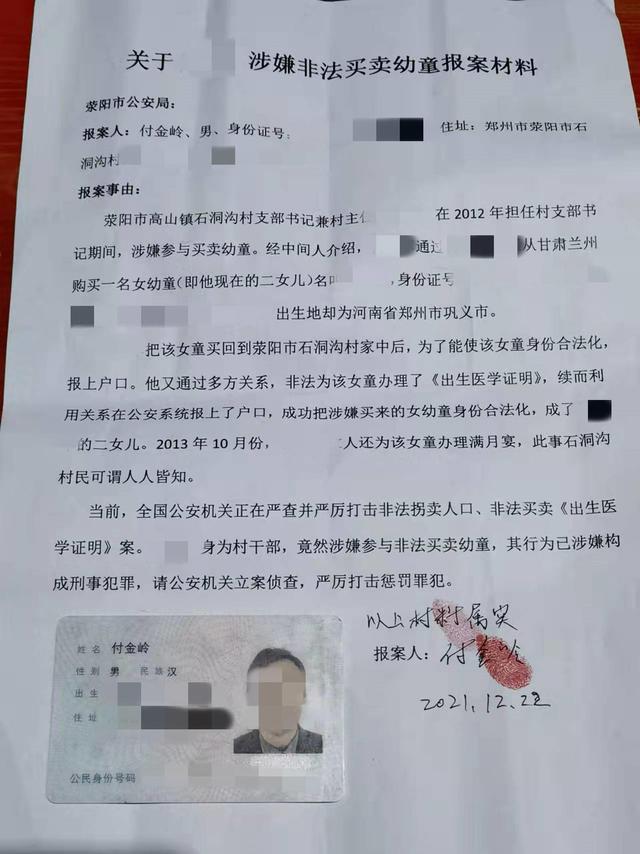 关于 涉嫌非法买卖幼童报案材料
荥阳市公安局：
报案人：付金岭、男、身份证号： 住址：郑州市荥阳市石
洞沟村
报案事由：
荥阳市高山镇石洞沟村支部书记兼村主任 在 2012 年担任村支部书
记期间，涉嫌参与买卖幼童。经中间人介绍， 通过 从甘肃兰州
购买一名女幼童（即他现在的二女儿）名叫 ，身份证号
出生地却为河南省郑州市巩义市。
把该女童买回到荥阳市石洞沟村家中后，为了能使该女童身份合法化，
报上户口。他又通过多方关系，非法为该女童办理了《出生医学证明》，续而利
用关系在公安系统报上了户口，成功把涉嫌买来的女幼童身份合法化，成了
的二女儿。2013 年 10 月份， 人还为该女童办理满月宴，此事石洞沟
村民可谓人人皆知。
当前，全国公安机关正在严查并严厉打击非法拐卖人口、非法买卖《出生医
学证明》案。 身为村干部，竟然涉嫌参与非法买卖幼童，其行为已涉嫌构
成刑事犯罪，请公安机关立案侦查，严厉打击惩罚罪犯。
以上材料属实
报案人：付金岭
2021.12.22
姓名 付金岭
性别 男 民族 汉
出生
住址
公民身份号码